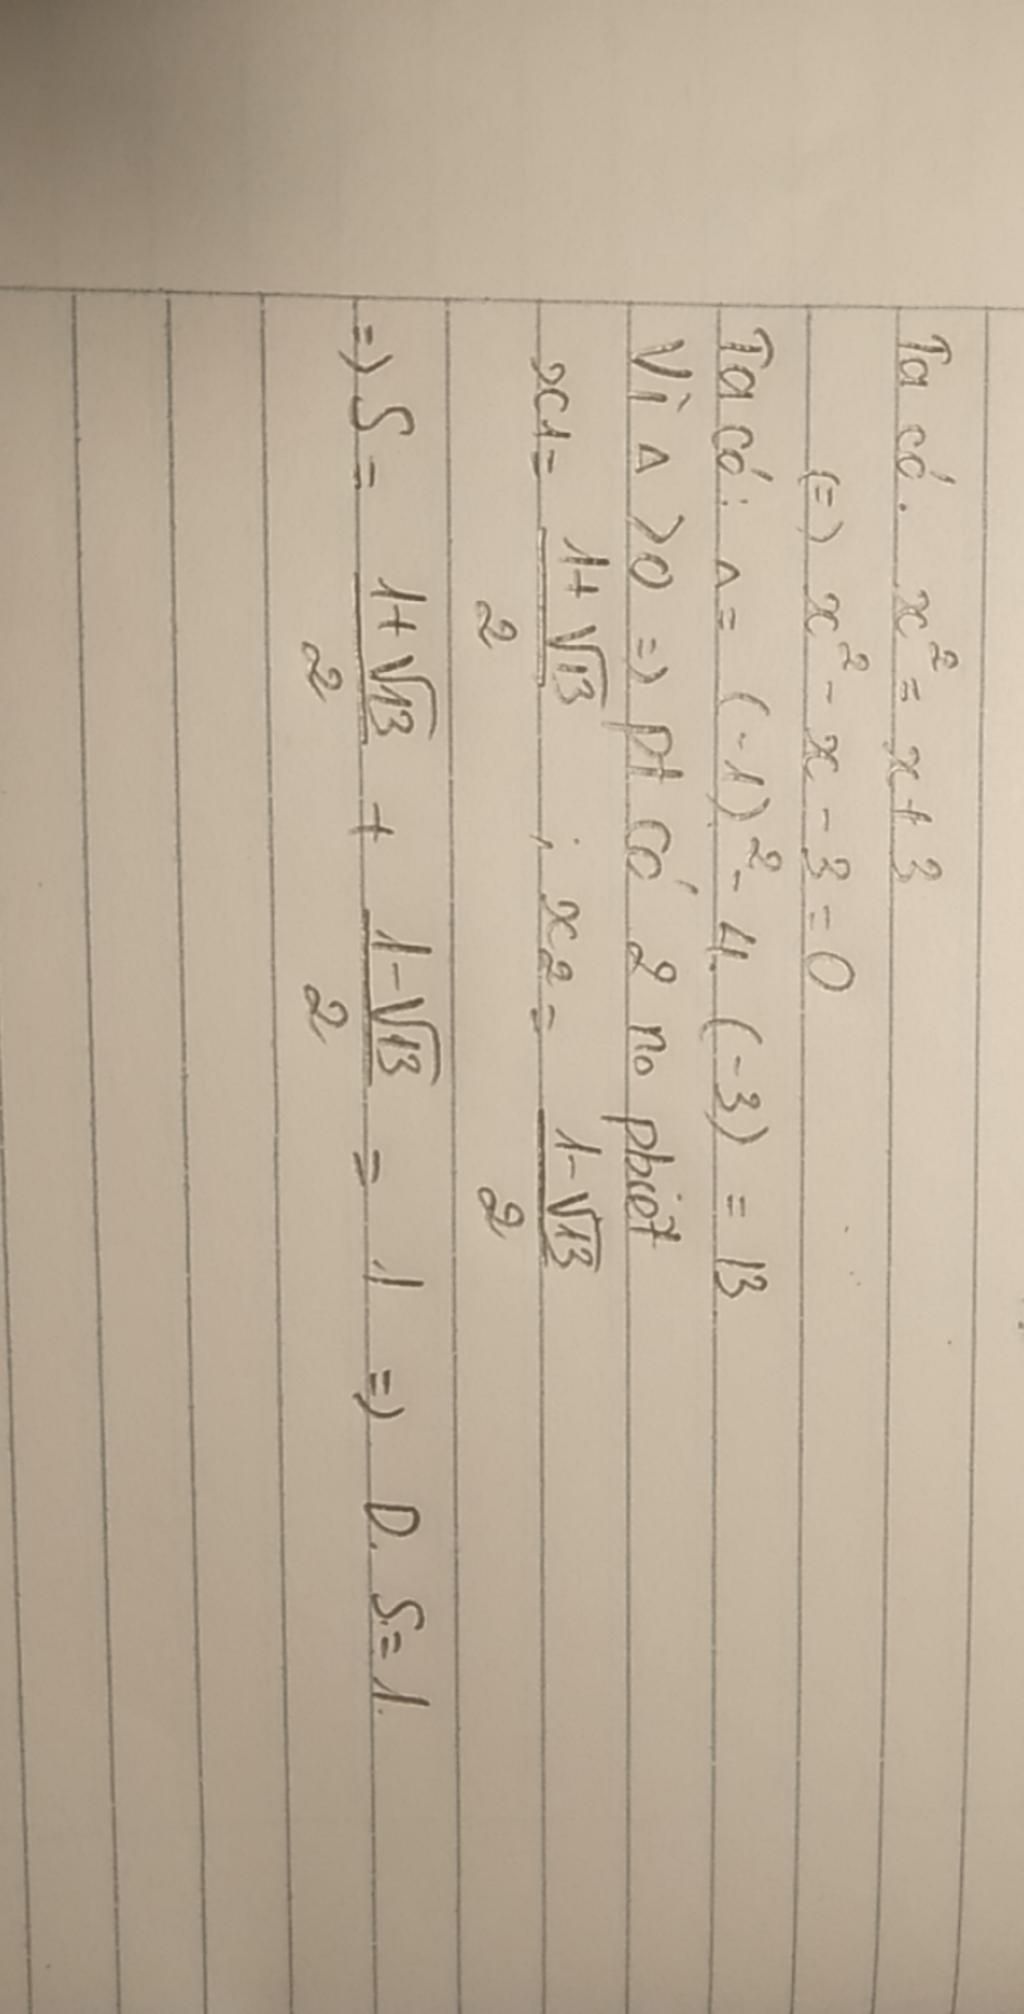 Ta có. x² = x + 3
(=) x² - x - 3 = 0
Ta có: Δ = (-1)² - 4. (-3) = 13
Vì Δ > 0 => pt có 2 no pbiet
x1 = (1+√13)/2 ; x2 = (1-√13)/2
=> S = (1+√13)/2 + (1-√13)/2 = 1 => D. S = 1.